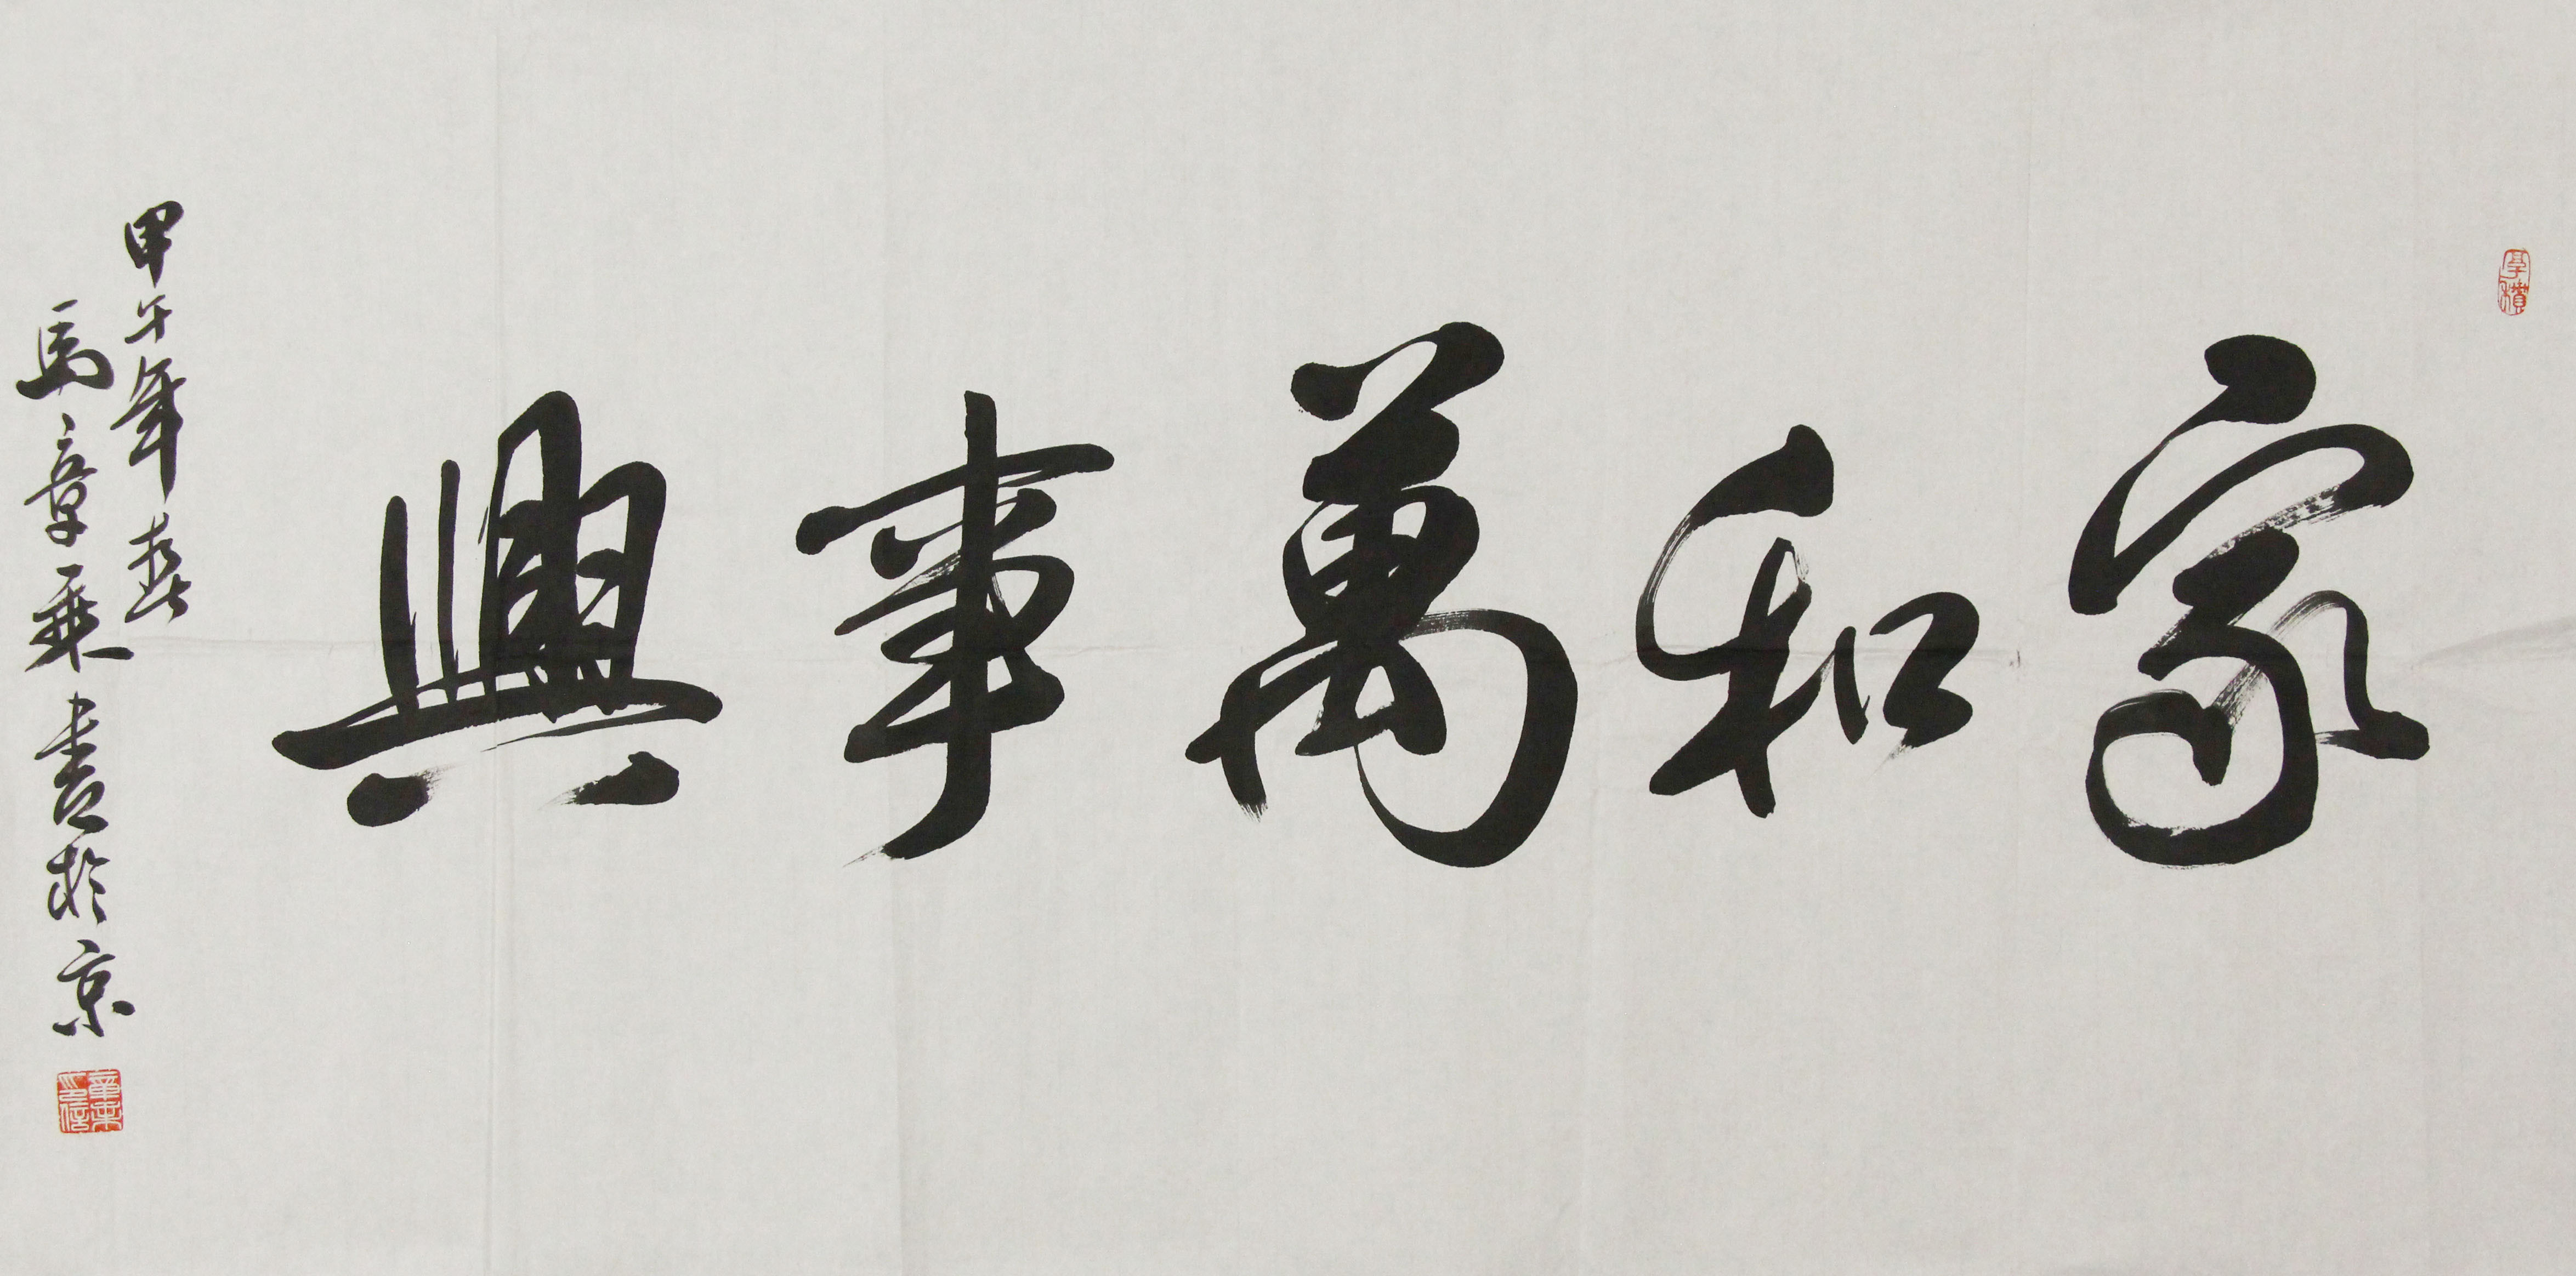 家和萬事興
甲午年春
馬章乘書於京
厚積
章乘
印信